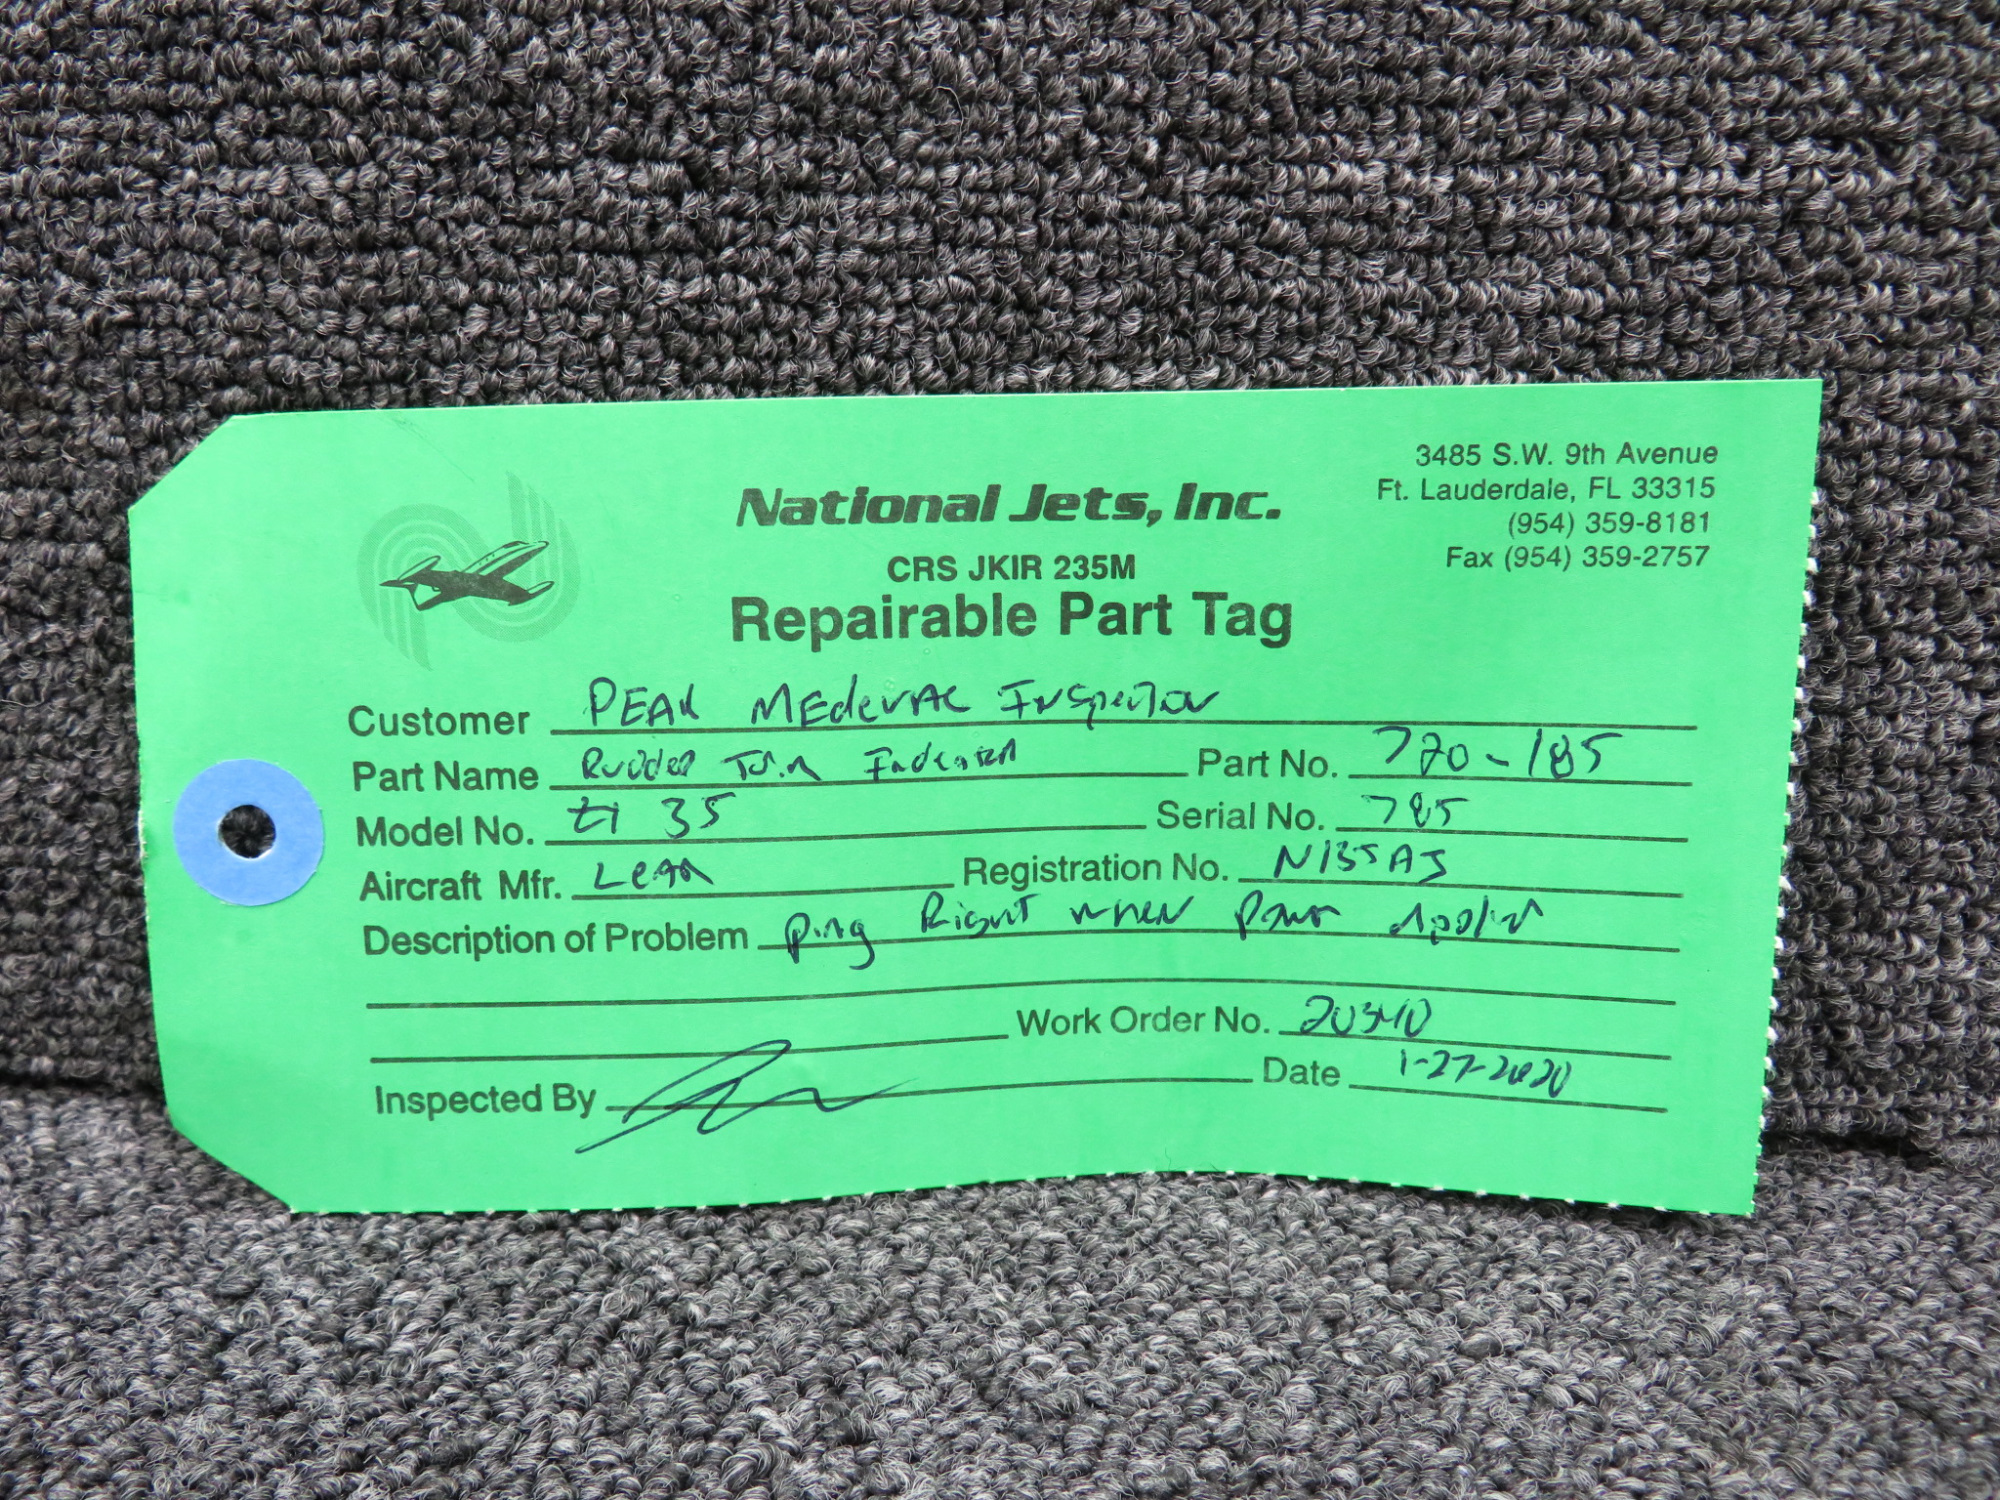 National Jets, Inc.
CRS JKIR 235M
Repairable Part Tag
3485 S.W. 9th Avenue
Ft. Lauderdale, FL 33315
(954) 359-8181
Fax (954) 359-2757
Customer PEAK MEdevAC Inspector
Part Name Rudder Trim Indicator Part No. 720-185
Model No. 35 Serial No. 785
Aircraft Mfr. Lear Registration No. N135AJ
Description of Problem Ping Right when Power Applied
Work Order No. 20340
Inspected By Date 1-27-2020